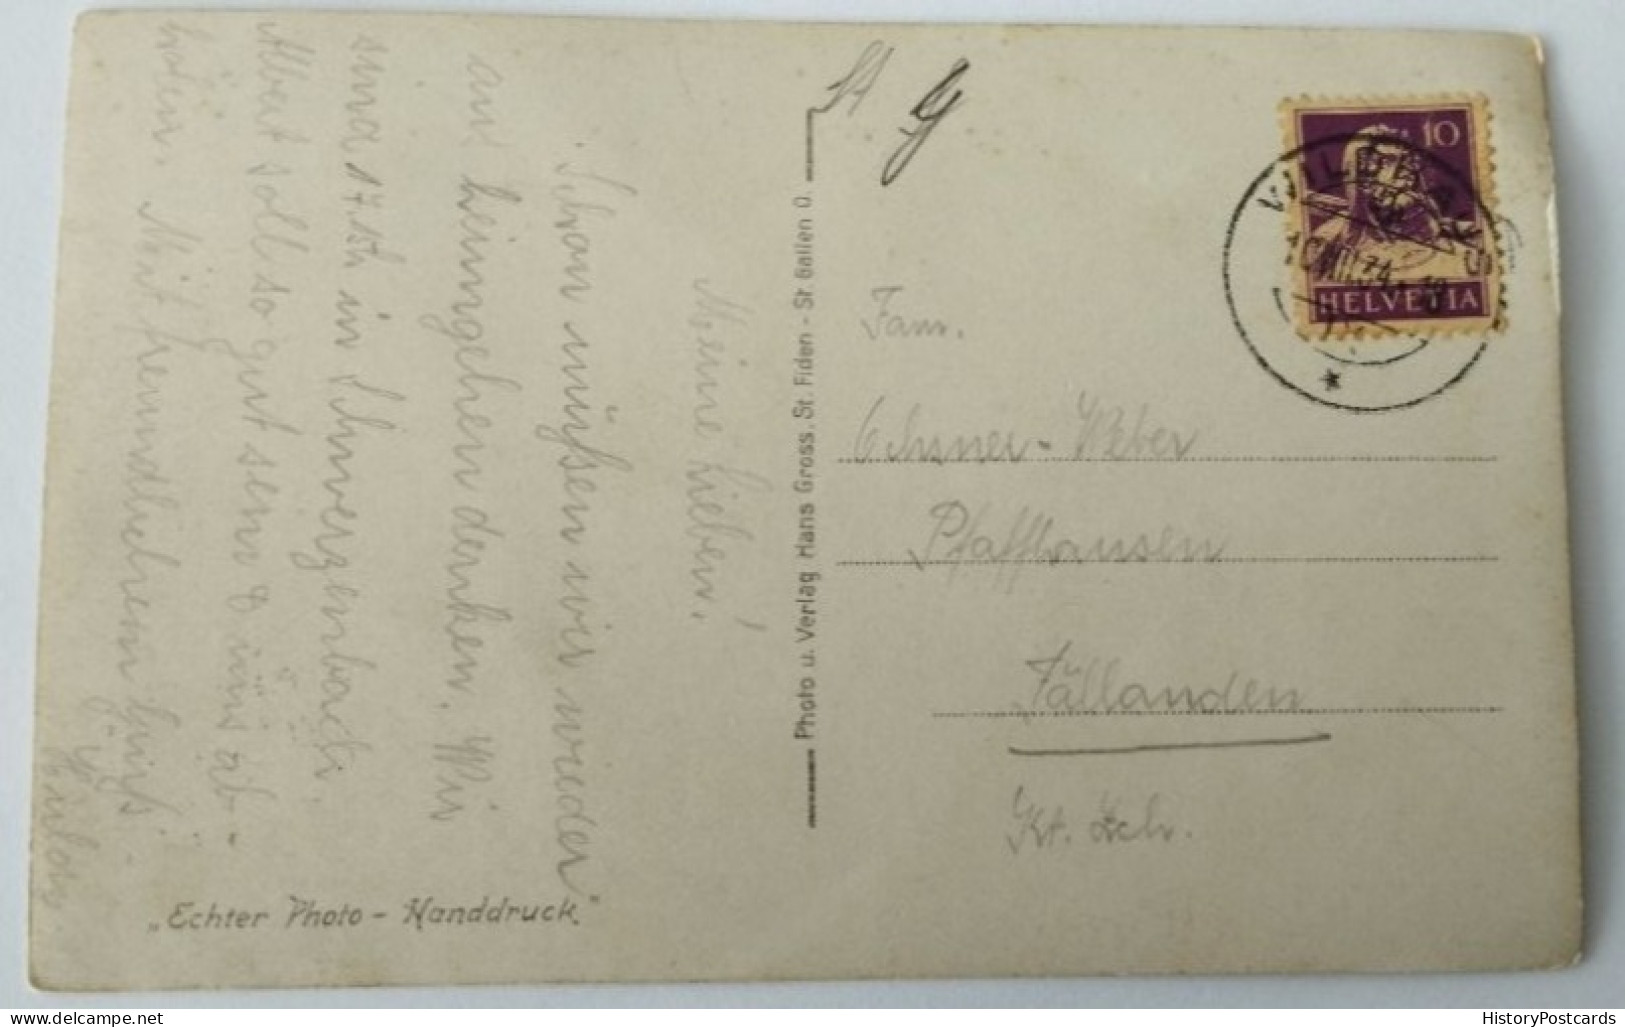 Meine Lieben!
Schon müßen wir wieder
ans heimgehen denken. Wir
sind 17.15h in Schwerzenbach.
Albert soll so gut sein & uns ab-
holen. Mit freundlichem Gruß
St G
Photo u. Verlag Hans Gross. St. Fiden - St Gallen O.
"Echter Photo - Handdruck."
10
HELVETIA
WILDHAUS
Fam.
Ochsner - Weber
Pfaffhausen
Fällanden
Kt. Zch.
HistoryPostcards
delcampe.net